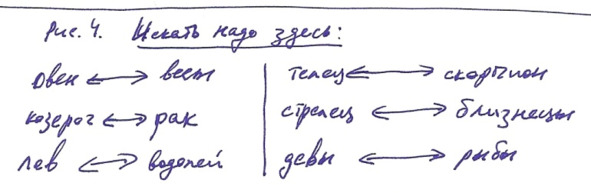 Рис. 4. Искать надо здесь:
овен ↔ весы | телец ↔ скорпион
козерог ↔ рак | стрелец ↔ близнецы
лев ↔ водолей | девы ↔ рыбы